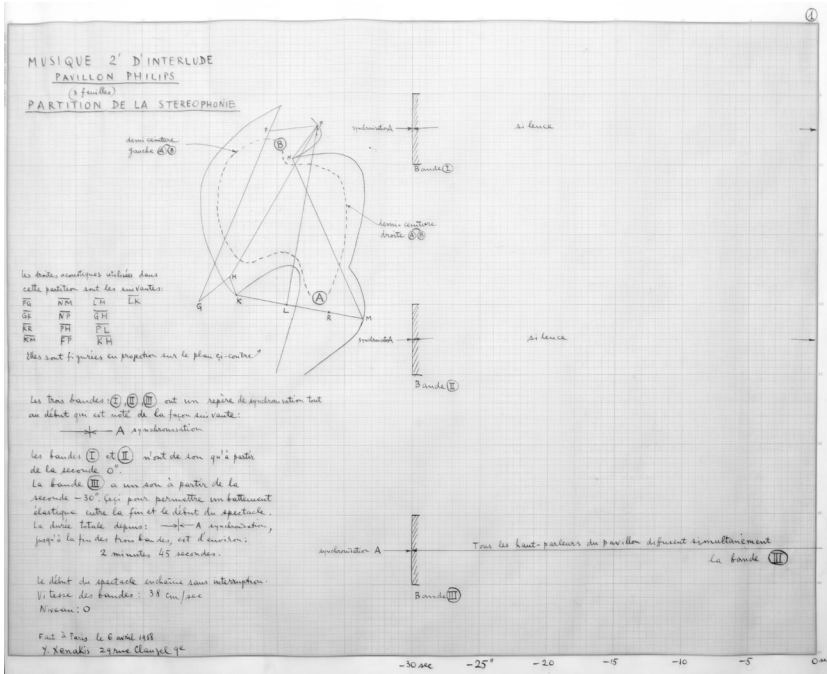 ①
MUSIQUE 2' D'INTERLUDE
PAVILLON PHILIPS
(3 feuilles)
PARTITION DE LA STEREOPHONIE
demi ceinture
gauche Ⓐ Ⓑ
F
P
B
N
demi-ceinture
droite Ⓐ Ⓑ
H
G
K
A
L
R
M
Les droites acoustiques utilisées dans
cette partition sont les suivantes:
FG NM LH LK
GK NP GH
KR PH PL
RM FP KH
Elles sont figurées en projection sur le plan ci-contre
Les trois bandes: Ⓘ, Ⅱ, Ⅲ ont un repère de synchronisation tout
au début qui est noté de la façon suivante:
A synchronisation
Les bandes Ⓘ et Ⅱ n'ont de son qu'à partir
de la seconde 0".
La bande Ⅲ a un son à partir de la
seconde -30". Ceci pour permettre un battement
élastique entre la fin et le début du spectacle.
La durée totale depuis: A synchronisation,
jusqu'à la fin des trois bandes, est d'environ:
2 minutes 45 secondes.
Le début du spectacle enchaîne sans interruption.
Vitesse des bandes: 38 cm/sec
Niveau: 0
Fait à Paris le 6 avril 1958
Y. Xenakis 29 rue Clauzel 9e
synchronisation A
silence
Bande Ⓘ
synchronisation A
silence
Bande Ⅱ
synchronisation A
Tous les haut-parleurs du pavillon diffusent simultanément
la bande Ⅲ
Bande Ⅲ
-30 sec -25" -20 -15 -10 -5 0